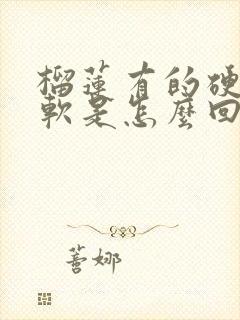 榴蓮有的硬
軟是怎麼回
薈娜